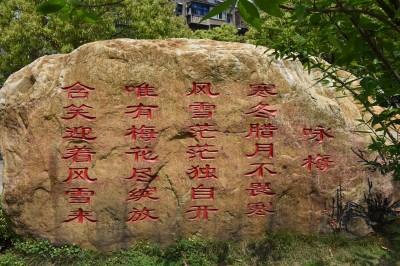 咏梅
寒冬腊月不畏寒
风雪茫茫独自开
唯有梅花尽绽放
含笑迎着风雪来